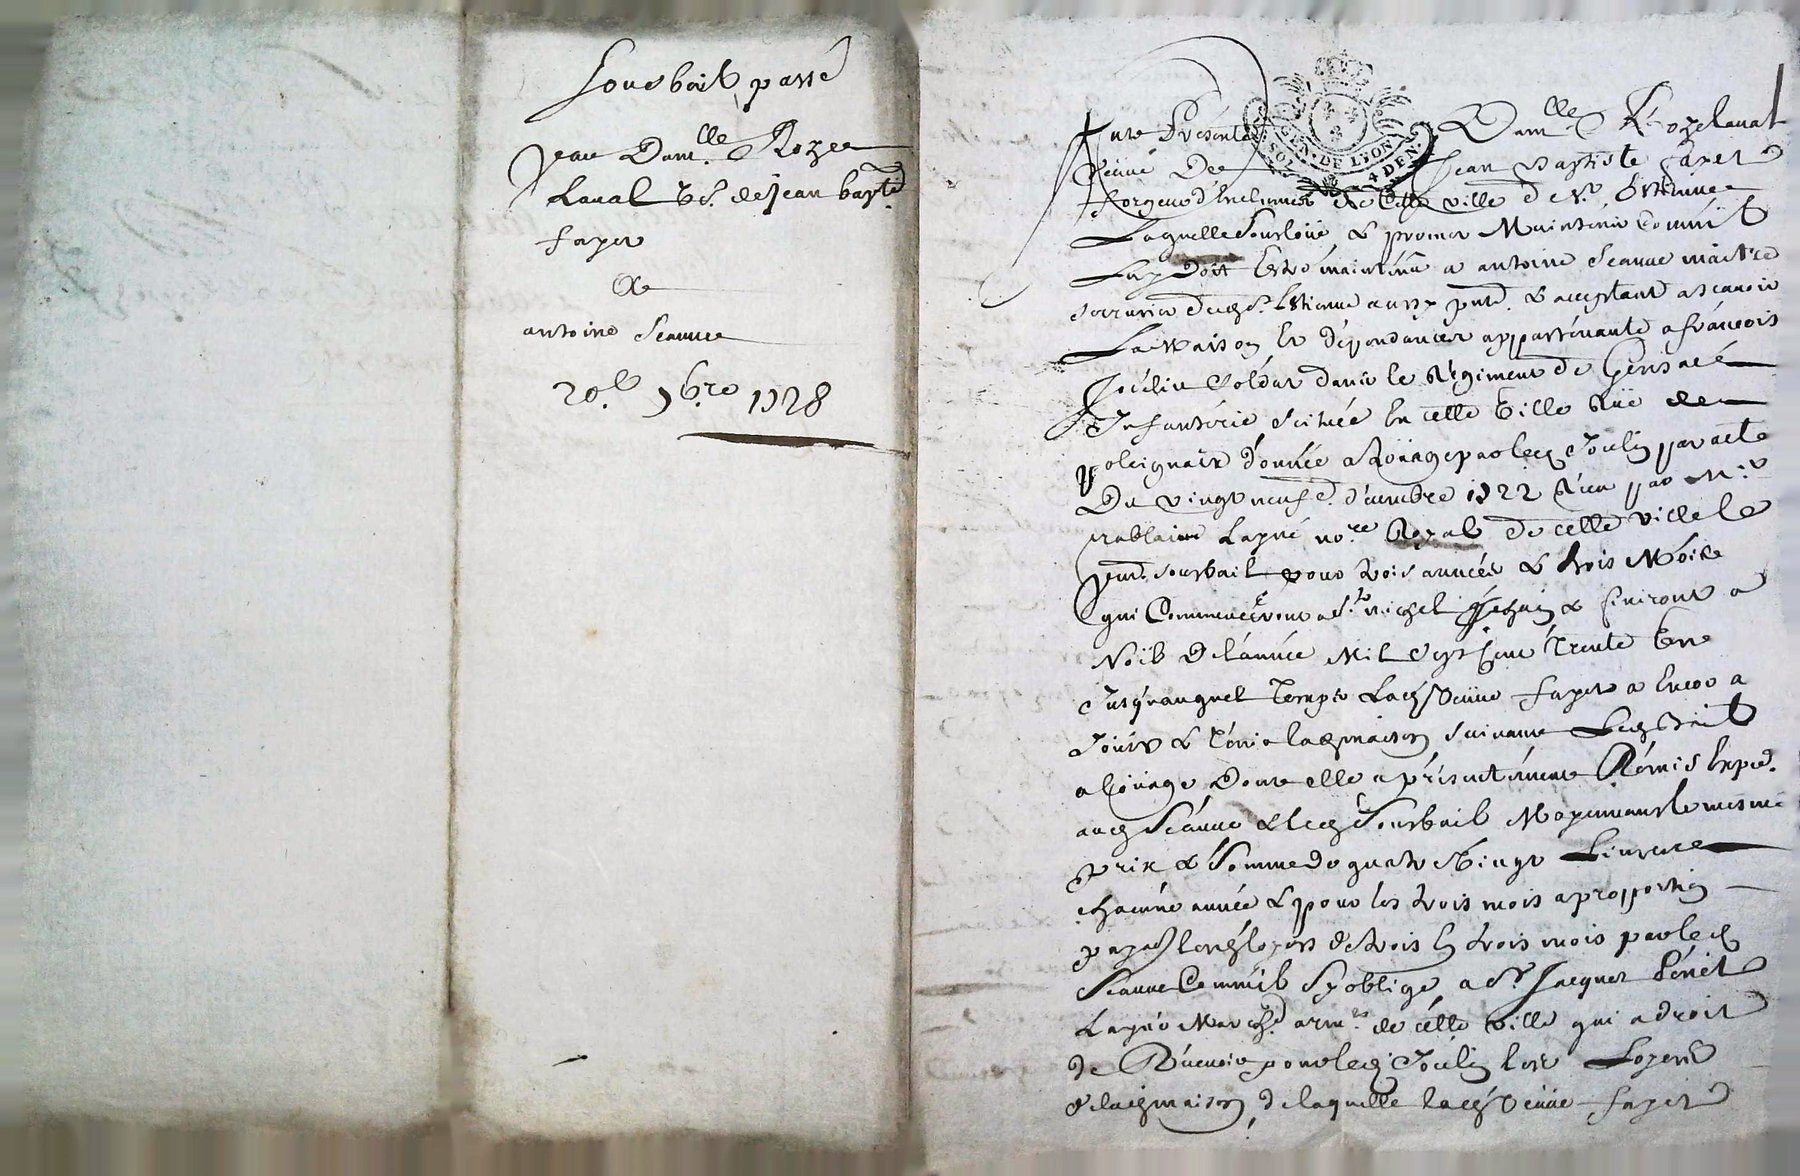 Sous bail passé
par Dam.lle Roze
Laval vs. de Jean bapt.e
fayet
a
antoine Seauve
20.e 9b.re 1728
fut Présente Dam.lle Roze laval
GEN. DE LYON
SOL 4 DEN.
veuve De Jean Baptiste fayet
forgeur d'Enclumes de cette ville de St. Estienne
Laquelle Sousloüe & promet Maintenir Comm'il
Luy doit Estre maintenu a antoine Seauve maitre
serrurier dud St. Estienne aussy pnt. & acceptant a scavoir
La maison Et dépendances appartenante a françois
Joulin Soldat dans le Régiment de
Infanterie Scituée En cette Ville Rüe de
polignais donnée a Loüage par led Joulin par acte
Du vingt neuf.e décembre 1722 Receu par M.e
Layné no.re Royal de cette ville le
pnt. sousbail pour trois années & trois Mois
qui Commenceront a St. michel & finiront a
Noël de l'année Mil Sept Cent Trente Une
Jusqu'auquel Temps Lad Veuve fayet a Encor a
Joüir & Tenir lad maison suivant Led Bail
a Loüage Dont elle a présentement Remis Exped.
aud Seauve & led Sousbail Moyennant le mesme
prix & Somme de quatre Vingt Livres
chacune année & pour les trois mois a proportion
payab. lesd loyers de trois En trois mois par led
Seauve Comm'il S'y oblige a Sr. Jacques
Layné March.d arm.er de cette ville qui a droit
de Reçevoir pour led Joulin les Loyers
de lad maison de laquelle lad Veuve fayet